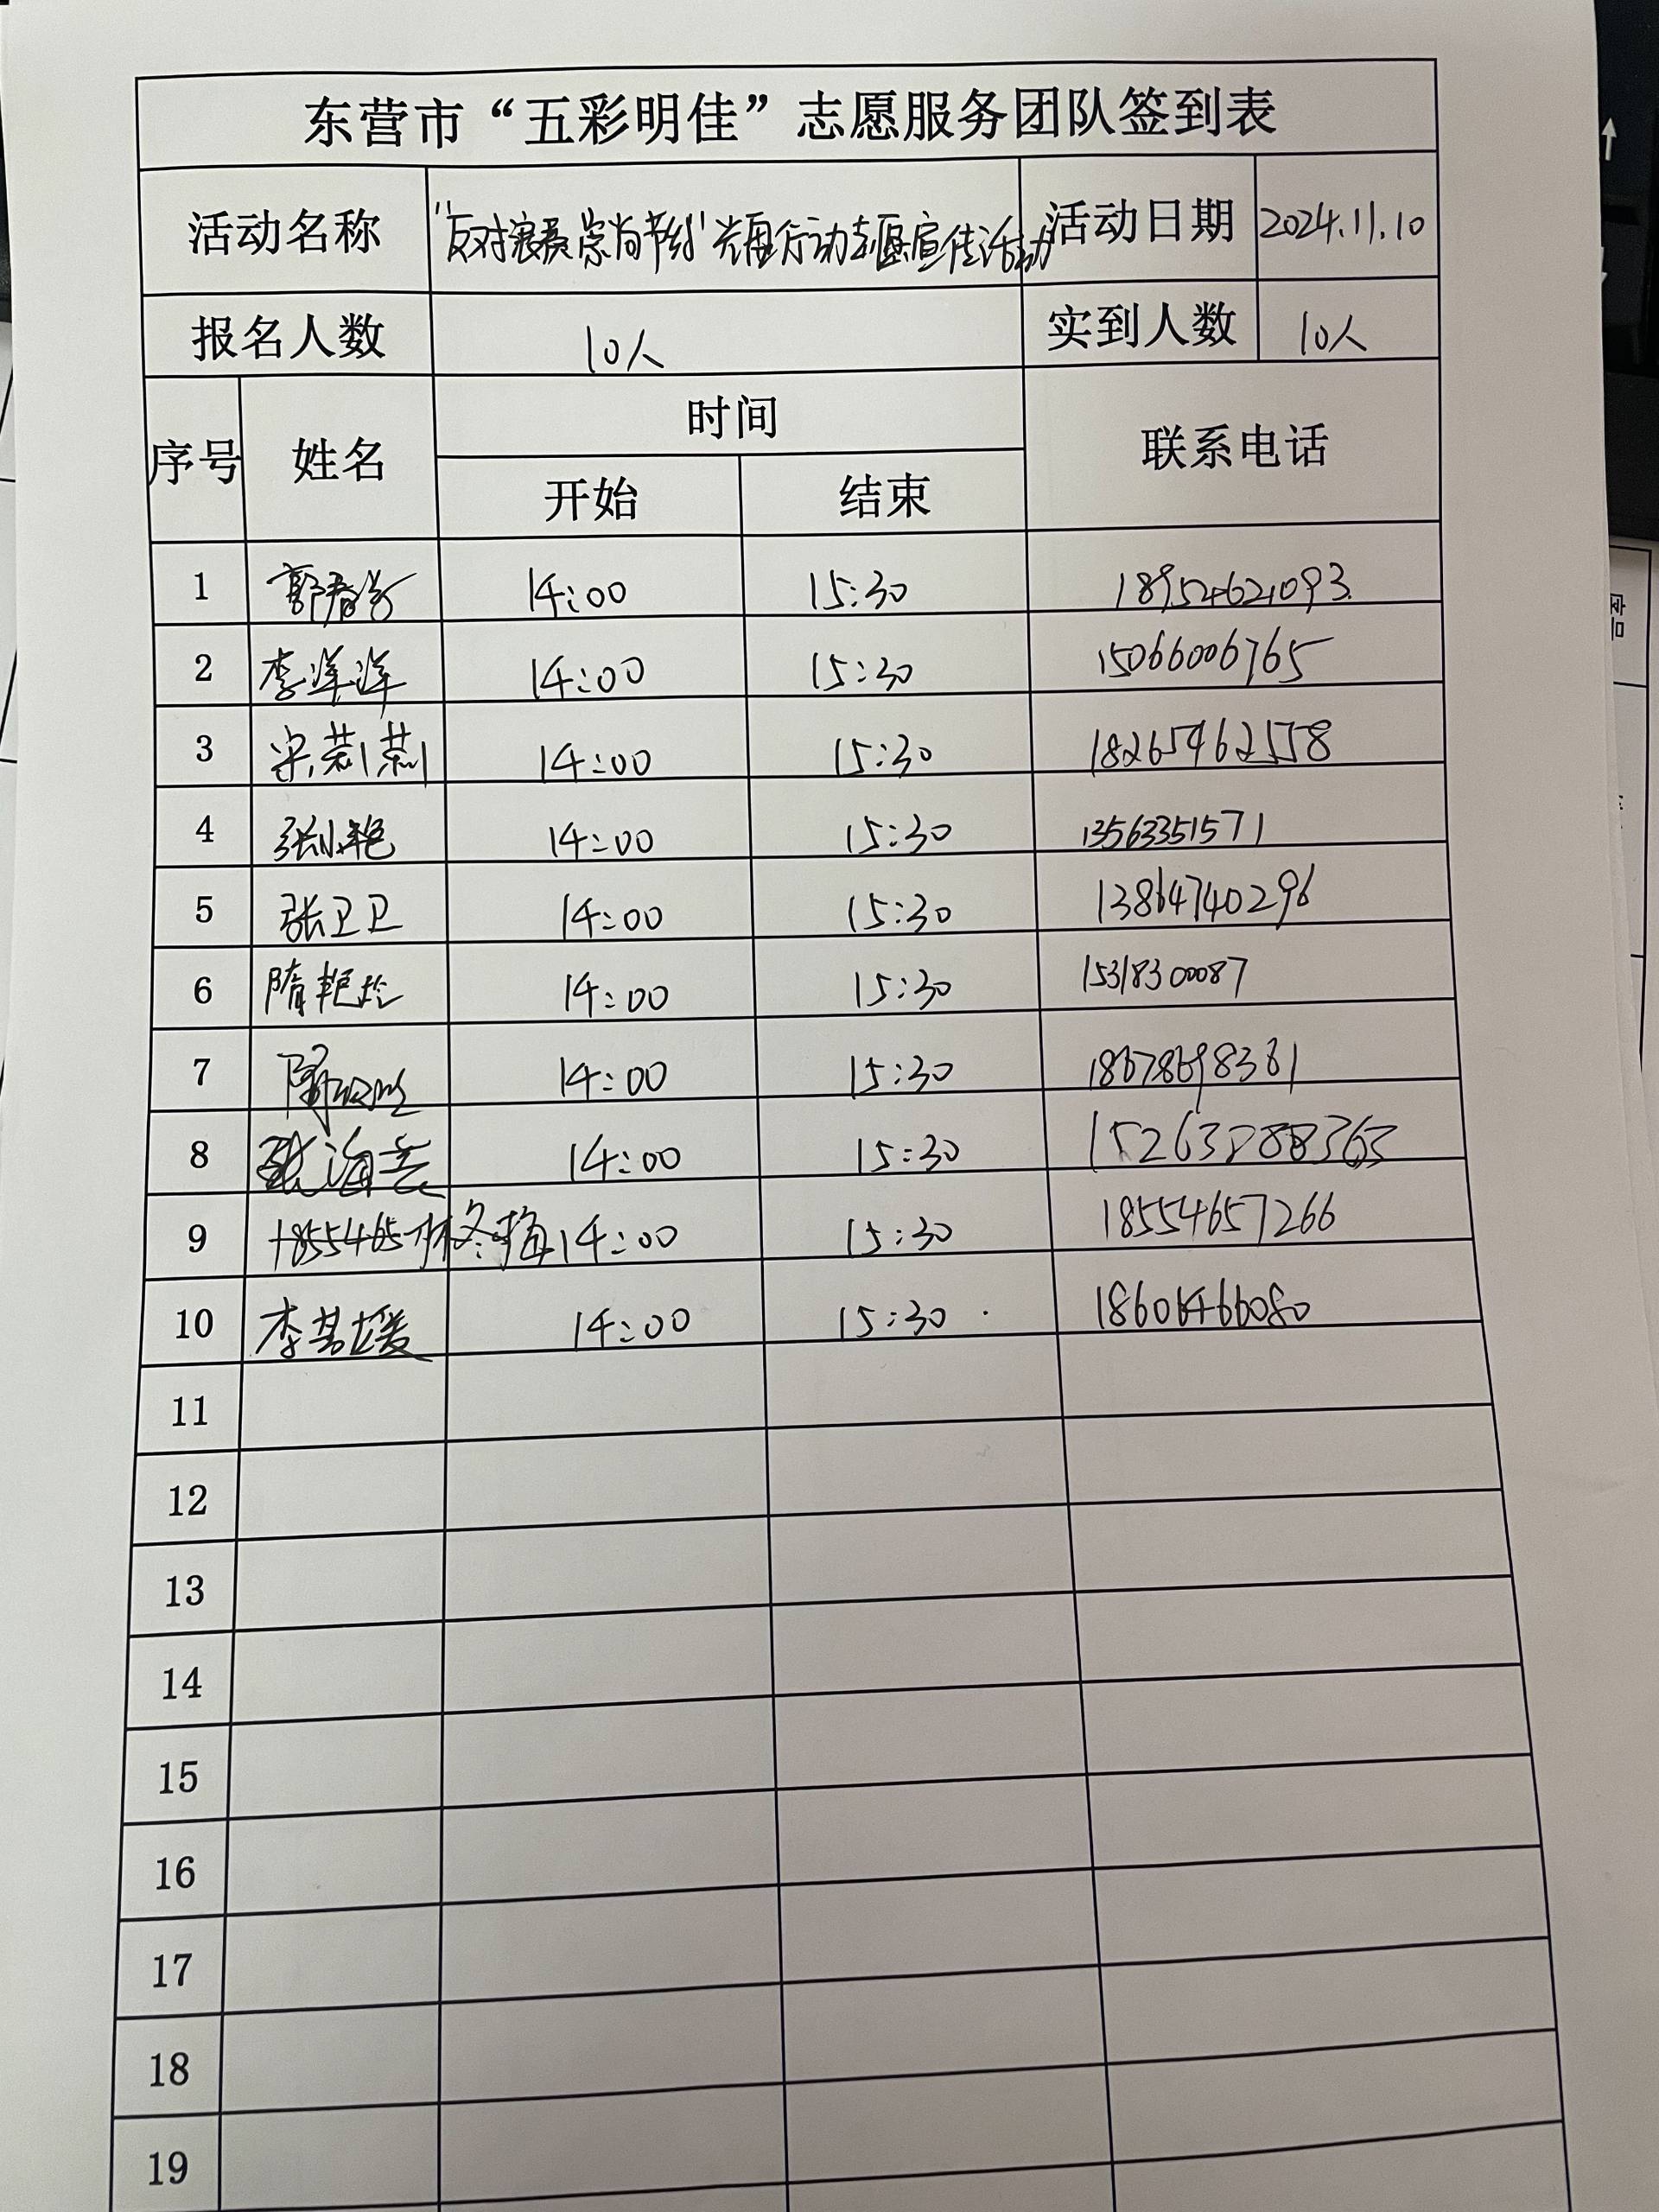 东营市“五彩明佳”志愿服务团队签到表
活动名称 “反对浪费 崇尚节约”光盘行动志愿宣传活动 活动日期 2024.11.10
报名人数 10人 实到人数 10人
序号 姓名 时间 联系电话
开始 结束
1 郭春芳 14:00 15:30 18954621093
2 李洋洋 14:00 15:30 15066006765
3 宋莉莉 14:00 15:30 18265462558
4 张小艳 14:00 15:30 13563351571
5 张卫卫 14:00 15:30 13864740296
6 隋艳玲 14:00 15:30 15318300087
7 14:00 15:30 18678698381
8 张海兰 14:00 15:30
9 林冬梅 14:00 15:30 18554657266
10 李其媛 14:00 15:30
11
12
13
14
15
16
17
18
19